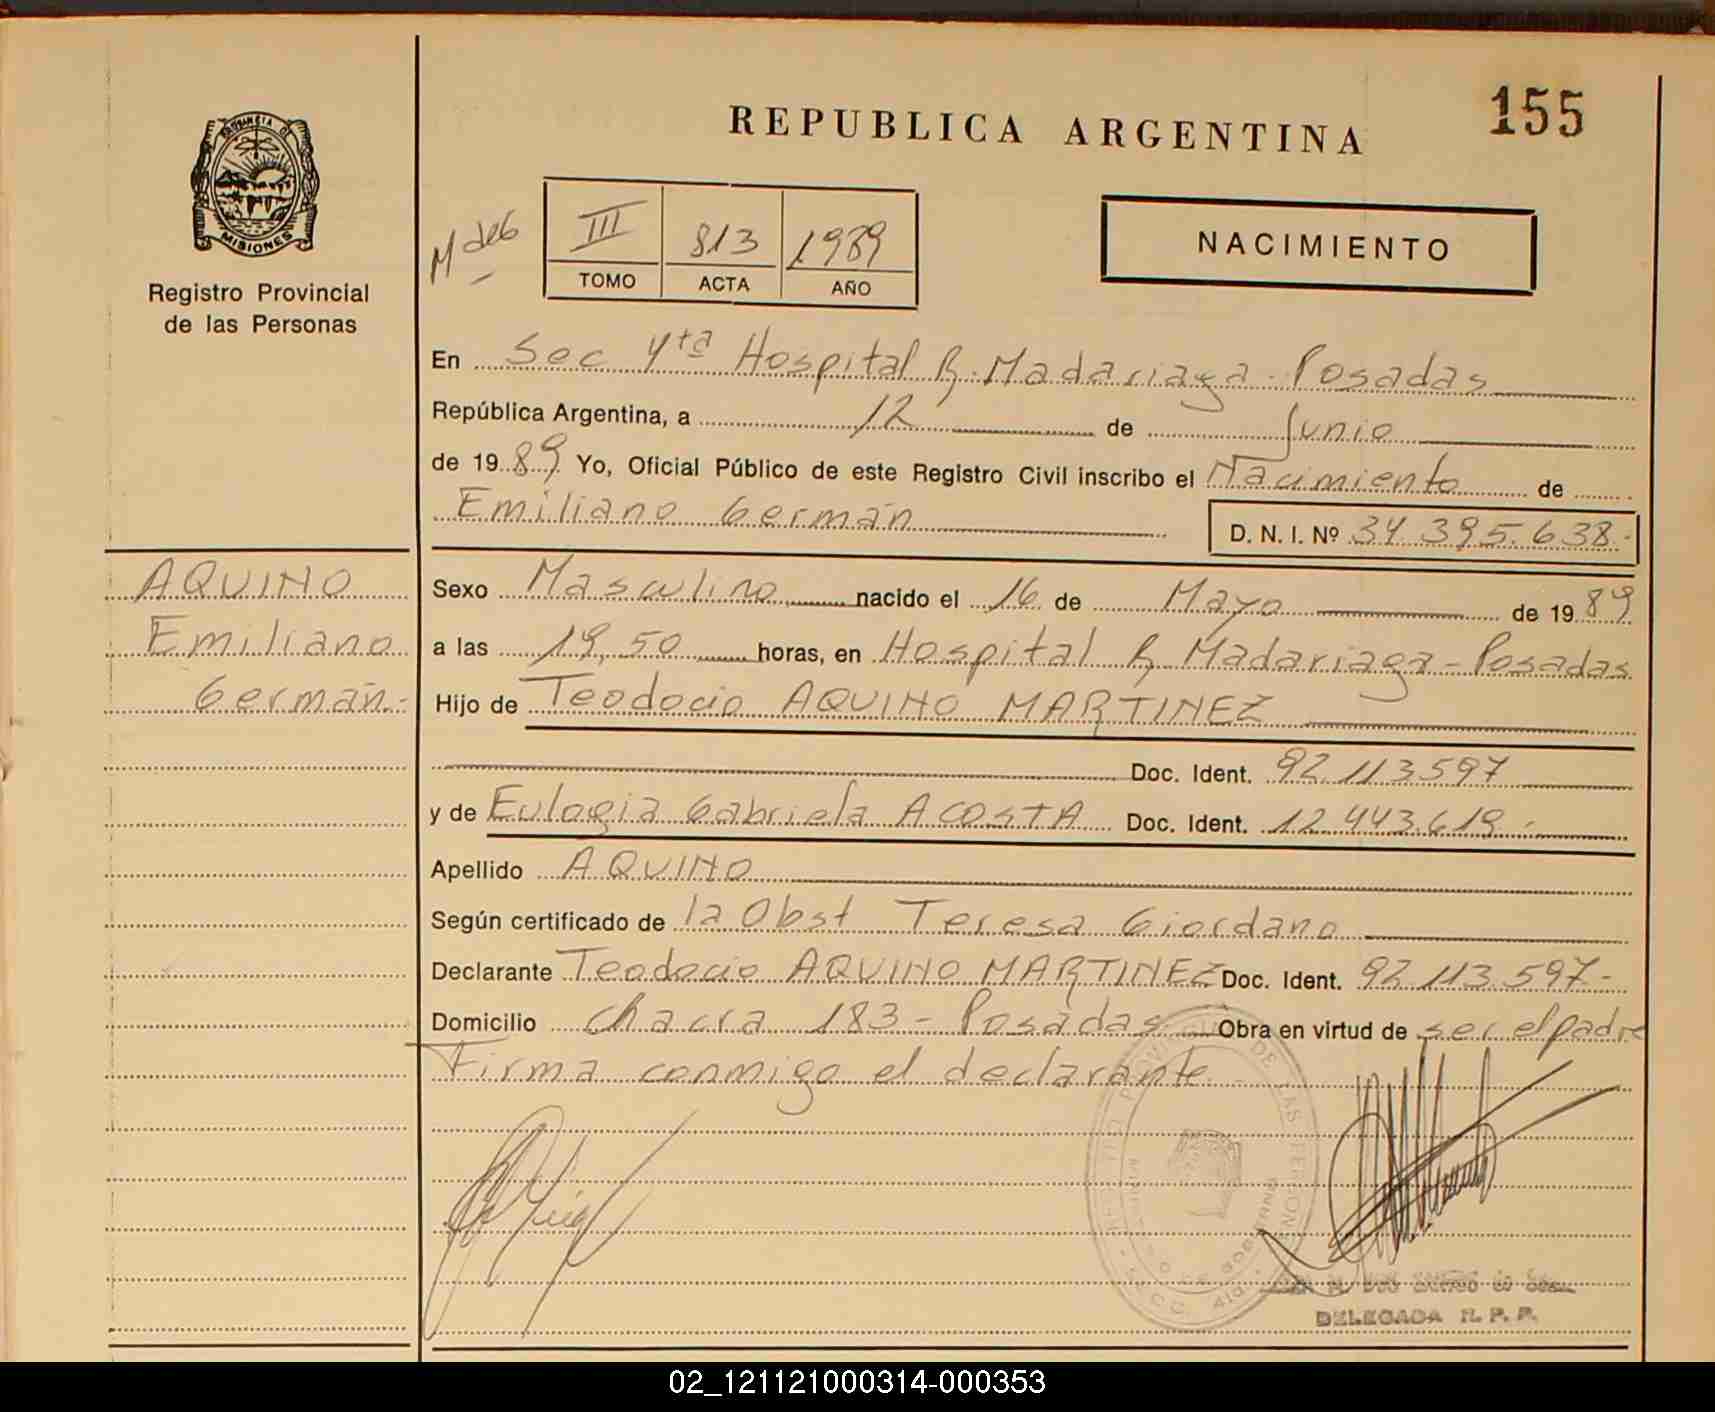 155
REPUBLICA ARGENTINA
PROVINCIA DE
MISIONES
Registro Provincial
de las Personas
III 813 1989
TOMO ACTA AÑO
NACIMIENTO
En Sec 4ta Hospital R. Madariaga - Posadas
República Argentina, a 12 de Junio
de 1989 Yo, Oficial Público de este Registro Civil inscribo el Nacimiento de
Emiliano Germán D. N. I. Nº 34.395.638.-
AQUINO
Emiliano
Germán.-
Sexo Masculino nacido el 16 de Mayo de 1989
a las 19,50 horas, en Hospital R. Madariaga - Posadas
Hijo de Teodocio AQUINO MARTINEZ
Doc. Ident. 92.113.597
y de Eulogia Gabriela ACOSTA Doc. Ident. 12.443.619.-
Apellido AQUINO
Según certificado de la Obst Teresa Giordano
Declarante Teodocio AQUINO MARTINEZ Doc. Ident. 92.113.597.-
Domicilio Chacra 183 - Posadas Obra en virtud de ser el padre
Firma conmigo el declarante.
DELEGADA R. P. P.
02_121121000314-000353